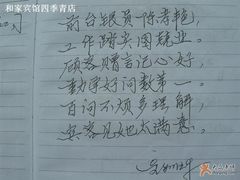 和家宾馆四季青店
前台银员陈寿艳，
工作踏实图就业。
顾客赠言记心好，
勤学好问数第一。
百问不烦多理解，
宾客见她太满意。